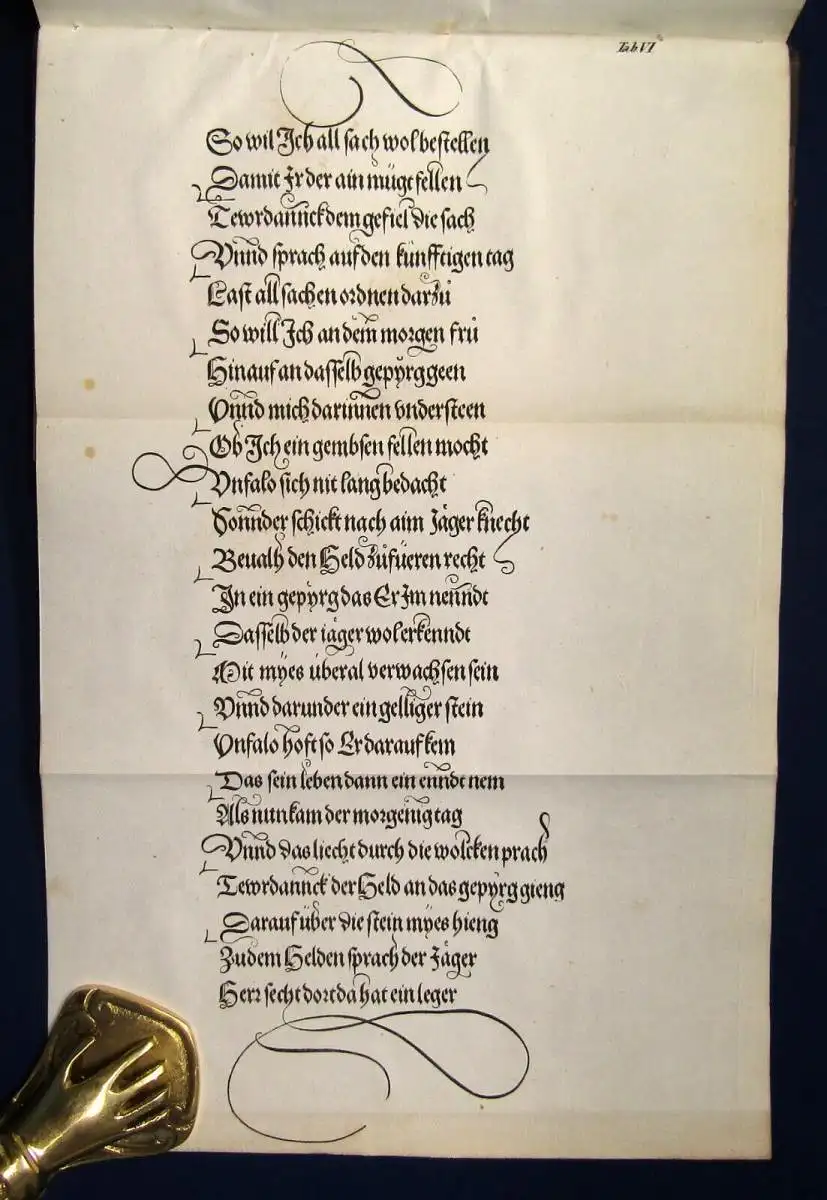 Tab VI
So wil Ich all sach wol bestellen
Damit Ir der ain mügt fellen
Tewrdannck dem gefiel die sach
Vnnd sprach auf den künfftigen tag
Last all sachen ordnen darzů
So will Ich an dem morgen frů
Hinauf an dasselb gepyrg geen
Vnnd mich darinnen vndersteen
Ob Ich ein gembsen fellen mocht
Vnfalo sich nit lang bedacht
Sonnder schickt nach aim Jäger knecht
Beualh den Held zůfüeren recht
In ein gepyrg das Er Im nenndt
Dasselb der jäger wol erkenndt
Mit myes überal verwachsen sein
Vnnd darunder ein gelliger stein
Vnfalo hoft so Er darauf kem
Das sein leben dann ein enndt nem
Als nun kam der morgenig tag
Vnnd das liecht durch die wolcken prach
Tewrdannck der Held an das gepyrg gieng
Darauf über die stein myes hieng
Zu dem Helden sprach der Jäger
Herr secht dort da hat ein leger